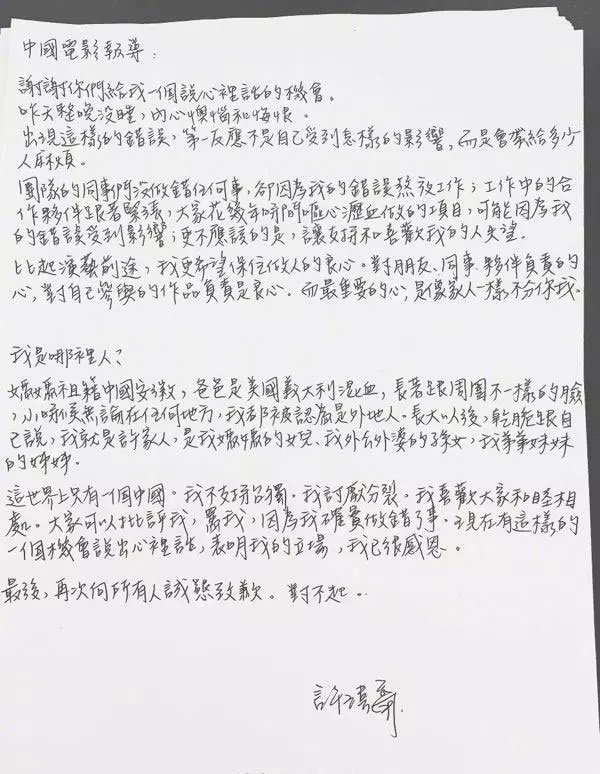 中國電影報導：
謝謝你們給我一個說心裡話的機會。
昨天整晚沒睡，內心懊惱和悔恨。
出現這樣的錯誤，第一反應不是自己受到怎樣的影響，而是會帶給多少
人麻煩。
團隊的同事們沒做錯任何事，卻因為我的錯誤熬夜工作；工作中的合
作夥伴跟著緊張，大家花幾年時間嘔心瀝血做的項目，可能因為我
的錯誤受到影響；更不應該的是，讓支持和喜歡我的人失望。
比起演藝前途，我更希望保住做人的良心。對朋友、同事、夥伴負責的
心，對自己參與的作品負責是良心。而最重要的心，是像家人一樣不分你我。
我是哪裡人？
媽媽祖籍中國安徽，爸爸是美國義大利混血，長著跟周圍不一樣的臉
，小時侯無論在任何地方，我都被認為是外地人。長大以後，乾脆跟自
己說，我就是許家人，是我媽媽的女兒、我外公外婆的孫女，我弟弟妹妹
的姊姊。
這世界上只有一個中國。我不支持台獨。我討厭分裂。我喜歡大家和睦相
處。大家可以批評我，罵我，因為我不確實做錯了事。現在有這樣的
一個機會說出心裡話，表明我的立場，我已很感恩。
最後，再次向所有人誠懇致歉。對不起。
許瑋甯